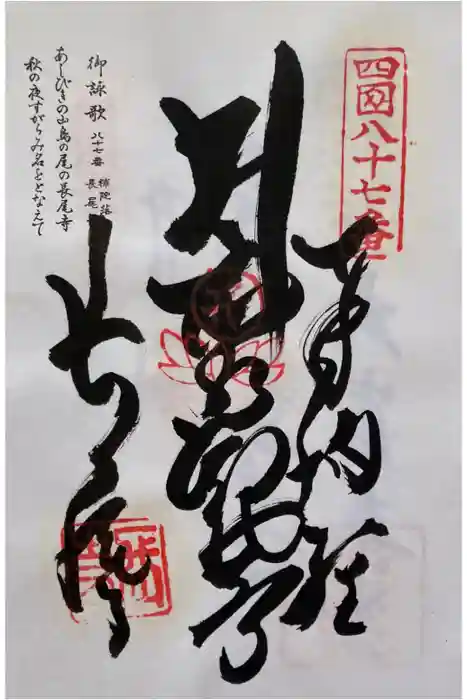 四国八十七番
奉納経
聖観世音
長尾寺
御詠歌 八十七番 補陀落 長尾
あしびきの山鳥の尾の長尾寺
秋の夜すがらみ名をとなえて